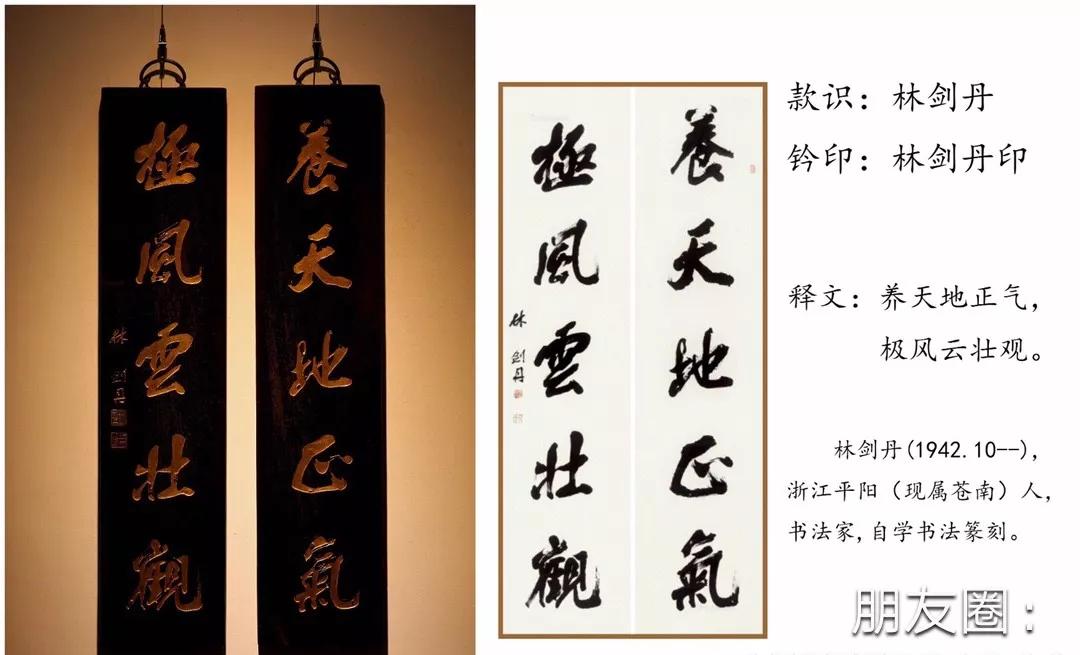 養天地正氣
極風雲壯觀
林劍丹
養天地正氣
極風雲壯觀
林劍丹
款识：林剑丹
钤印：林剑丹印
释文：养天地正气，
极风云壮观。
林剑丹(1942.10--)，
浙江平阳（现属苍南）人，
书法家，自学书法篆刻。
朋友圈：